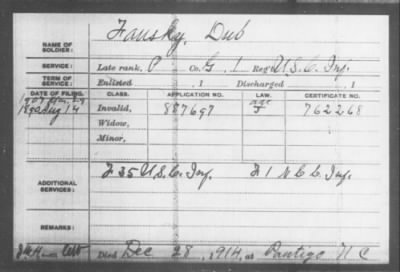 Fansky, Dub
NAME OF SOLDIER:
SERVICE: Late rank, P Co. G, 1 Reg't U.S.C. Inf.
TERM OF SERVICE: Enlisted , 1 Discharged , 1
DATE OF FILING. CLASS. APPLICATION NO. LAW. CERTIFICATE NO.
1907
1890 Aug 14 Invalid, 887697 age 762268
Widow,
Minor,
ADDITIONAL SERVICES: F 35 U.S.C. Inf. F 1 N C C. Inf.
REMARKS:
Died Dec 28, 1914, at Pantego N C